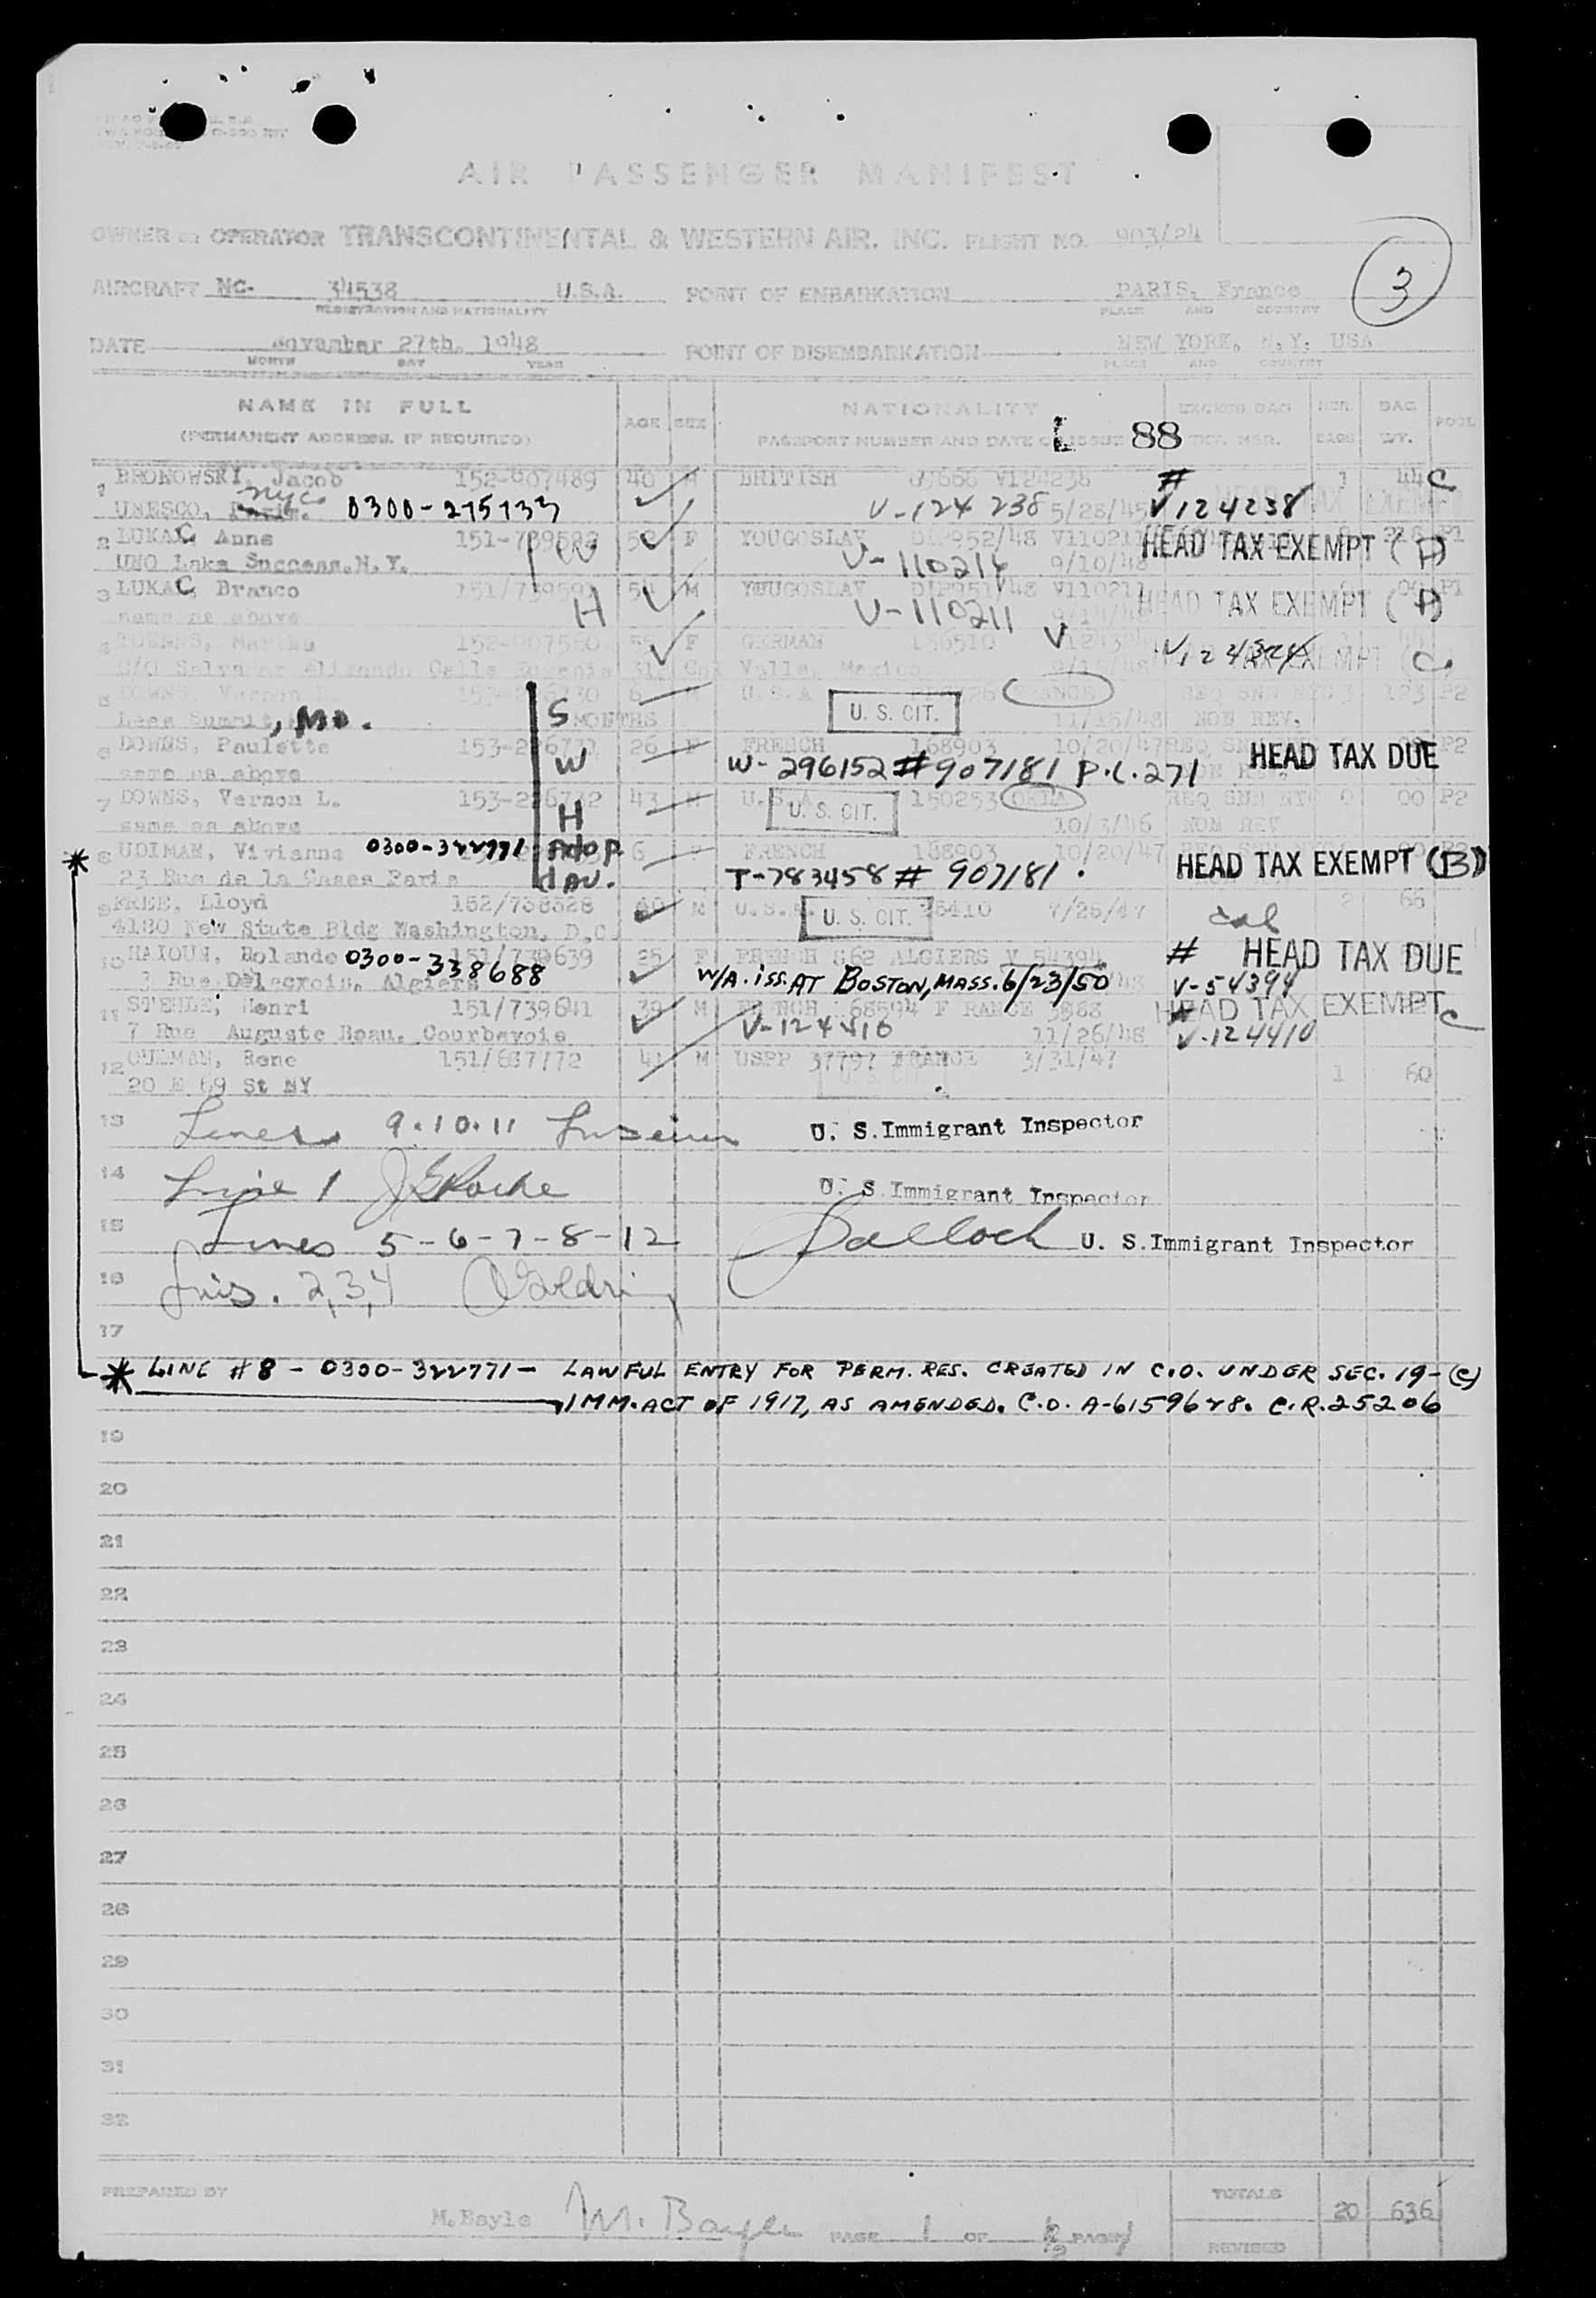 AIR PASSENGER MANIFEST
OWNER or OPERATOR TRANSCONTINENTAL & WESTERN AIR, INC. FLIGHT NO. 903/24
3
AIRCRAFT NC- 34538 U.S.A. POINT OF EMBARKATION PARIS, France
REGISTRATION AND NATIONALITY PLACE AND COUNTRY
DATE November 27th, 1948 POINT OF DISEMBARKATION NEW YORK, N.Y. USA
MONTH DAY YEAR PLACE AND COUNTRY
NAME IN FULL AGE SEX NATIONALITY EXCESS BAG NBR. BAG POOL
(PERMANENT ADDRESS, IF REQUIRED) PASSPORT NUMBER AND DATE OF ISSUE 88 TKT. NBR. BAGS WT.
1 BRONOWSKI, Jacob 152-907489 40 M BRITISH V124238 # 1 44 C
UNESCO, Paris. NYC 0300-275733 V-124 238 5/28/45 V124238 HEAD TAX EXEMPT
2 LUKAC, Anne 151-739592 W F YOUGOSLAV DIP952/48 HEAD TAX EXEMPT (A) P1
UNO Lake Success, N.Y. V-110214 9/10/48
3 LUKAC, Branco H 54 M YOUGOSLAV DIP951/48 V110211 HEAD TAX EXEMPT (A) P1
same as above V-110211
4 Martha 152-907560 55 F GERMAN 156510 V
C/O Salvador Calle Eugenia Col Valle, Mexico C
5 DOWNS, Vernon 6 U.S.A U. S. CIT. FRANCE REQ SNR NYC 3 123 P2
Lees Summit, Mo. S MONTHS 11/15/48 NON REV.
6 DOWNS, Paulette 153-226731 W 26 F FRENCH 168903 10/20/47 HEAD TAX DUE P2
same as above W-296152 # 907181 P.L.271
7 DOWNS, Vernon L. 153-226732 H 43 M U.S.A. U. S. CIT. 150253 0 00 P2
same as above 10/3/46 NON REV
* 8 UDIMAN, Vivianne 0300-322771 Adop. 6 F FRENCH 168903 10/20/47 HEAD TAX EXEMPT (B)
23 Rue de la Paris dau. T-783458 # 907181.
9 FREE, Lloyd 152/738528 M U.S.A. U. S. CIT. 7/25/47 2 66
4180 New State Bldg Washington, D.C.
10 HAIOUN, Rolande 0300-338688 151/739639 25 F FRENCH 862 ALGIERS V 54394 # HEAD TAX DUE
3 Rue Delacroix, Algiers W/A. iss. AT BOSTON, MASS. 6/23/50 V-54394
11 Henri 151/739641 39 M FRENCH 68594 HEAD TAX EXEMPT C
7 Rue Auguste Beau, Courbevoie V-124410 11/26/48 V-124410
12 Rene 151/637772 41 M USPP 37797 FRANCE 3/31/47
20 E 69 St NY 1 60
13 Lines 9.10.11 U. S. Immigrant Inspector
14 Line 1 U. S. Immigrant Inspector
15 Lines 5-6-7-8-12 U. S. Immigrant Inspector
16 Lines. 2,3,4
17
* LINE #8 - 0300-322771 - LAWFUL ENTRY FOR PERM. RES. CREATED IN C.O. UNDER SEC. 19-(c)
IMM. ACT OF 1917, AS AMENDED. C.O. A-6159628. C.R. 25206
19
20
21
22
23
24
25
26
27
28
29
30
31
32
PREPARED BY M. Bayle PAGE 1 OF PAGES TOTALS 20 636
REVISED